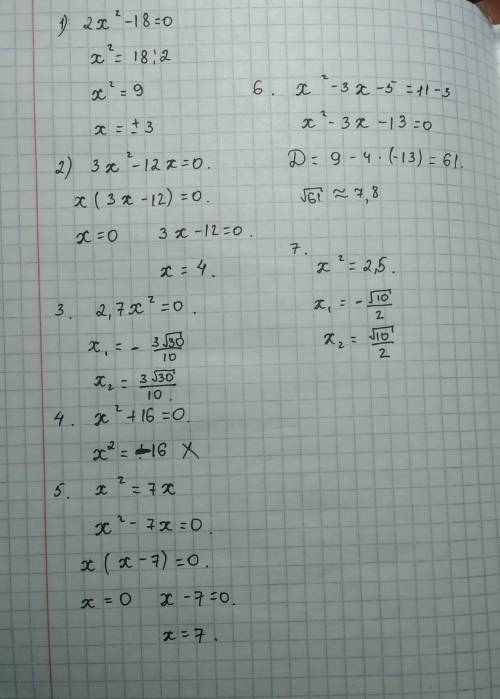 1) 2x² -18=0
x² = 18:2
x² = 9
x = ±3
2) 3x² -12x=0.
x(3x -12)=0.
x=0 3x-12=0.
x=4.
3. 2,7x² =0.
x₁ = - 3√30/10
x₂ = 3√30/10.
4. x² +16 =0.
x² = -16 X
5. x² = 7x
x² - 7x =0.
x(x-7)=0.
x=0 x-7=0.
x=7.
6. x² -3x -5 =11-3
x² -3x -13=0
D = 9 - 4·(-13) = 61.
√61 ≈ 7,8
7. x² = 2,5.
x₁ = - √10/2
x₂ = √10/2